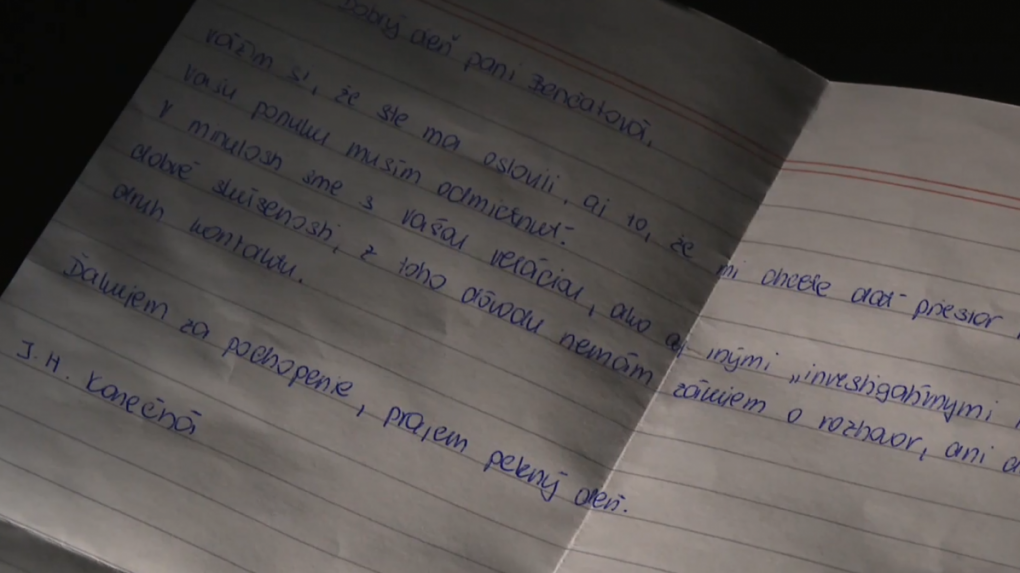 Dobrý deň pani Zenčatová,
vážim si, že ste ma oslovili, aj to, že mi chcete dať priestor
vašu ponuku musím odmietnuť.
V minulosti sme s vašou reláciou, ako aj inými „investigatívnymi
dobré skúsenosti, z toho dôvodu nemám záujem o rozhovor, ani
druh kontaktu.
Ďakujem za pochopenie, prajem pekný deň.
J. H. Konečná